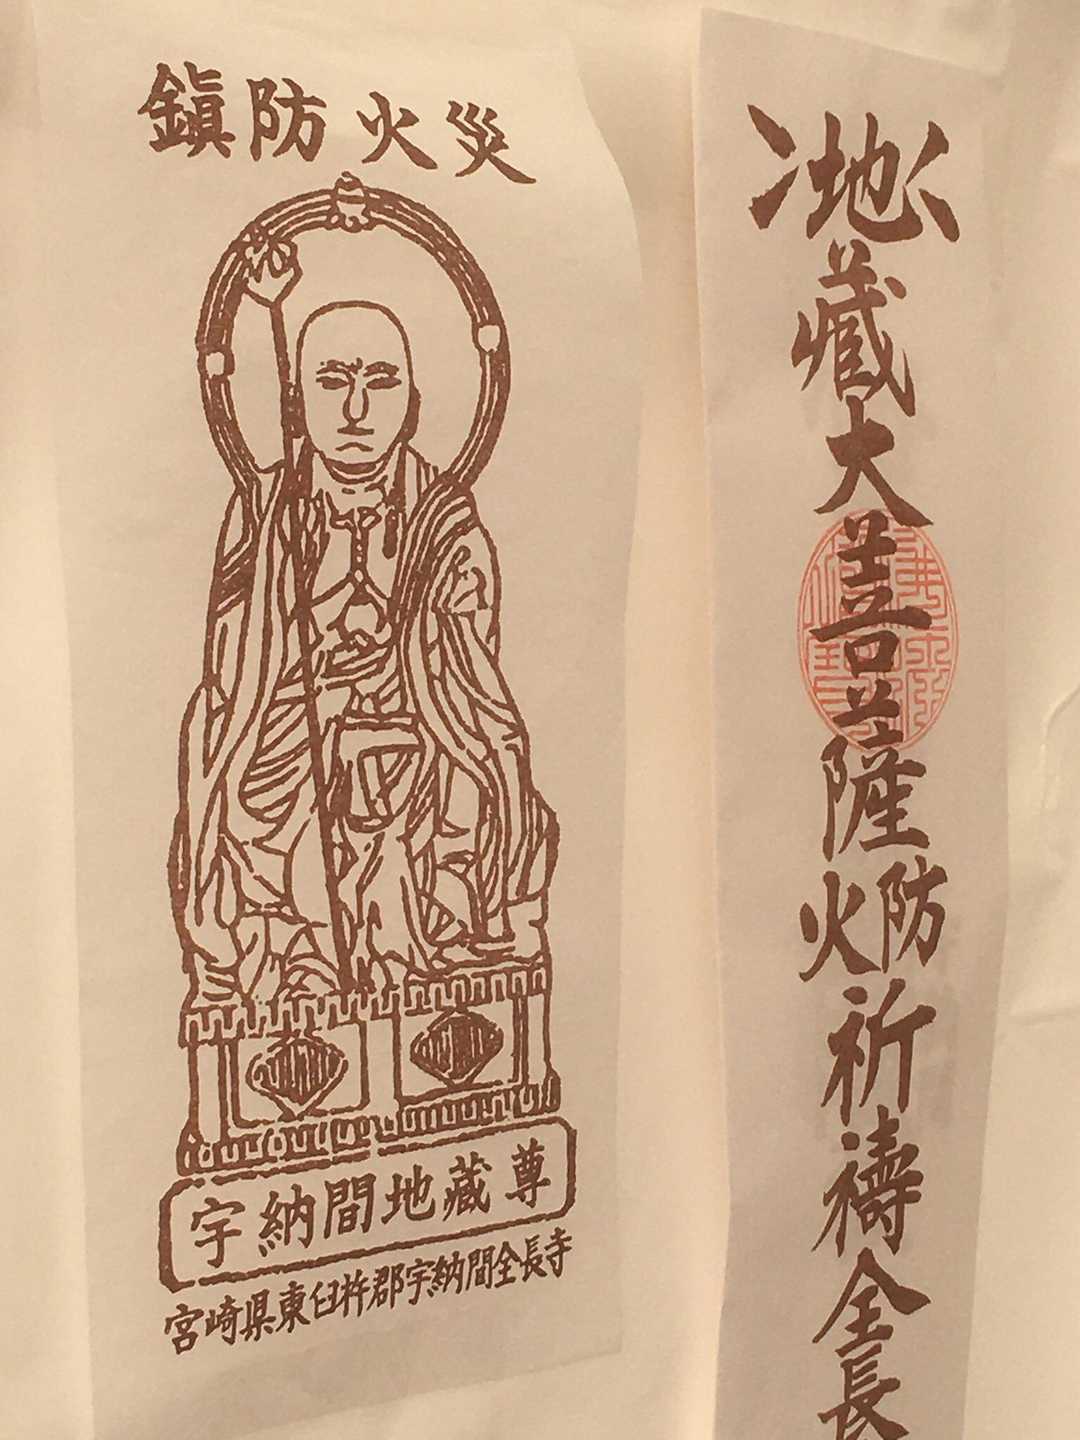 鎮防火災
宇納間地蔵尊
宮崎県東臼杵郡宇納間全長寺
地藏大菩薩防火祈禱全長